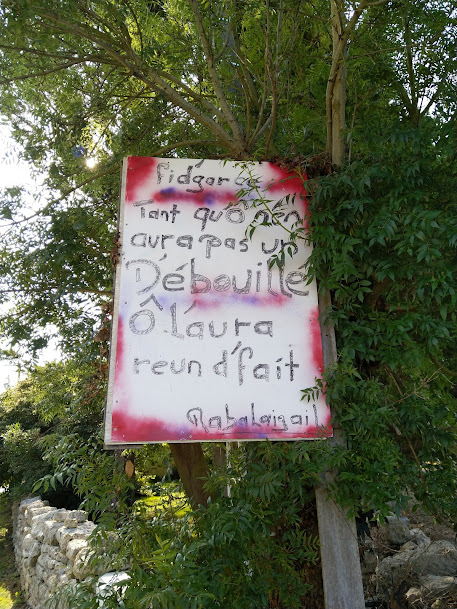 fidgarce
Tant qu'Ô n'en
aura pas un
Débouille
Ô l'aura
reun d'fait
Rabalaigail